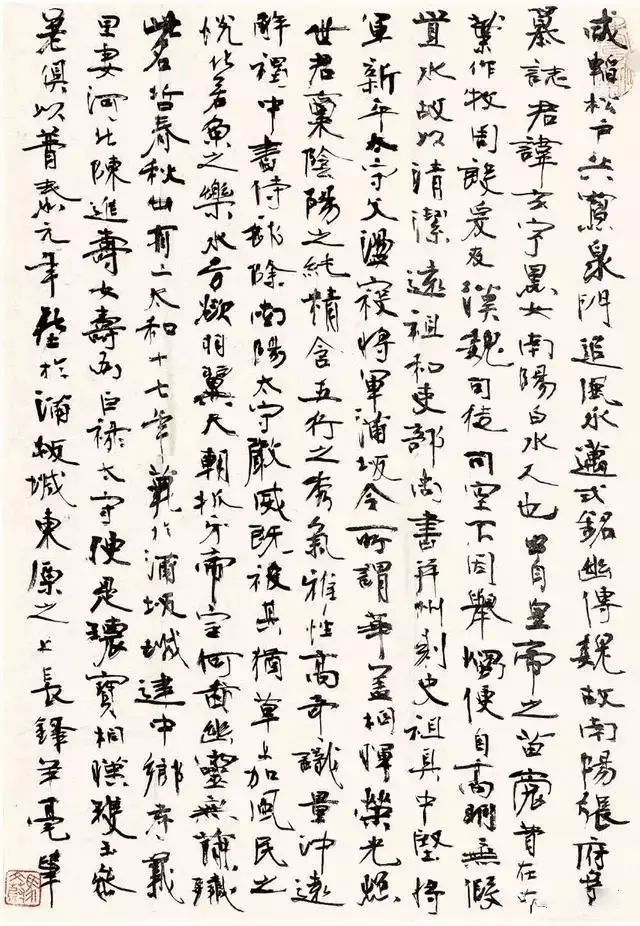 咸韜松戶共寂泉門追風永邁式銘幽傳魏故南陽張府君
墓誌君諱玄字黑女南陽白水人也出自皇帝之苗裔昔在中
葉作牧周殷爰及漢魏司徒司空不因舉燭便自高明無假
置水故以清潔遠祖和吏部尚書并州刺史祖具中堅將
軍新平太守父盪寇將軍蒲坂令所謂華蓋相暉榮光照
世君稟陰陽之純精含五行之秀氣雅性高奇識量沖遠
解褐中書侍郎除南陽太守嚴威既被其猶草上加風民之
悅化若魚之樂水方欲羽翼天朝抓牙帝室何啚幽靈無殲
此名哲春秋卅有二太和十七年薨於蒲坂城建中鄉孝義
里妻河北陳進壽女壽為巨祿太守便是瓌寶相映瓊玉參
差俱以普泰元年葬於蒲坂城東原之上長鋒羊毫筆